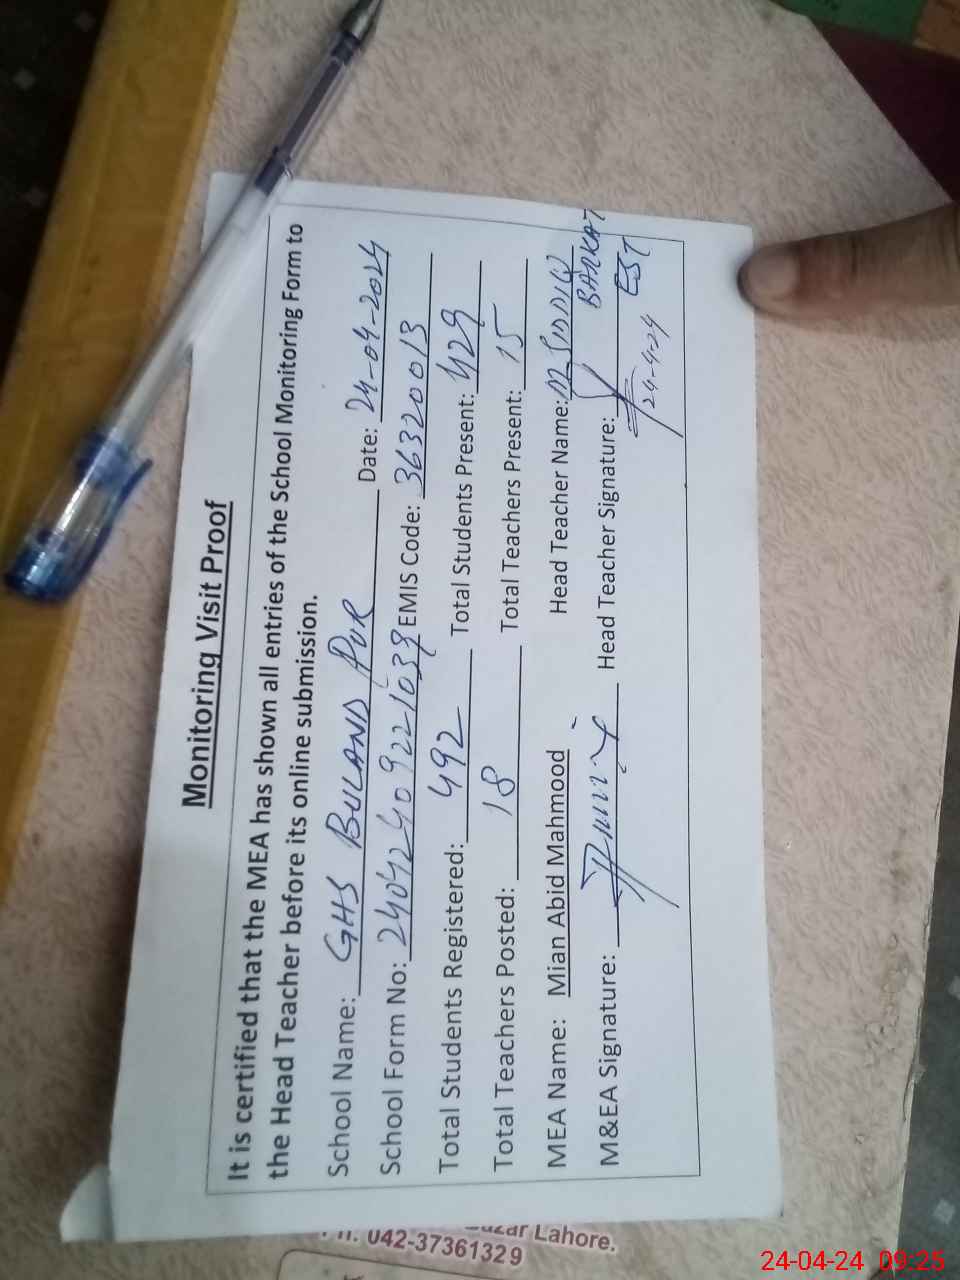 Monitoring Visit Proof
It is certified that the MEA has shown all entries of the School Monitoring Form to
the Head Teacher before its online submission.
School Name: GHS BULAND PUR Date: 24-04-2024
School Form No: 24042409221039 EMIS Code: 36320013
Total Students Registered: 492 Total Students Present: 429
Total Teachers Posted: 18 Total Teachers Present: 15
MEA Name: Mian Abid Mahmood Head Teacher Name: M SIDDIQ
BARKAT
M&EA Signature: Head Teacher Signature: EST
24-4-24
Lahore.
042-37361329
24-04-24 09:25